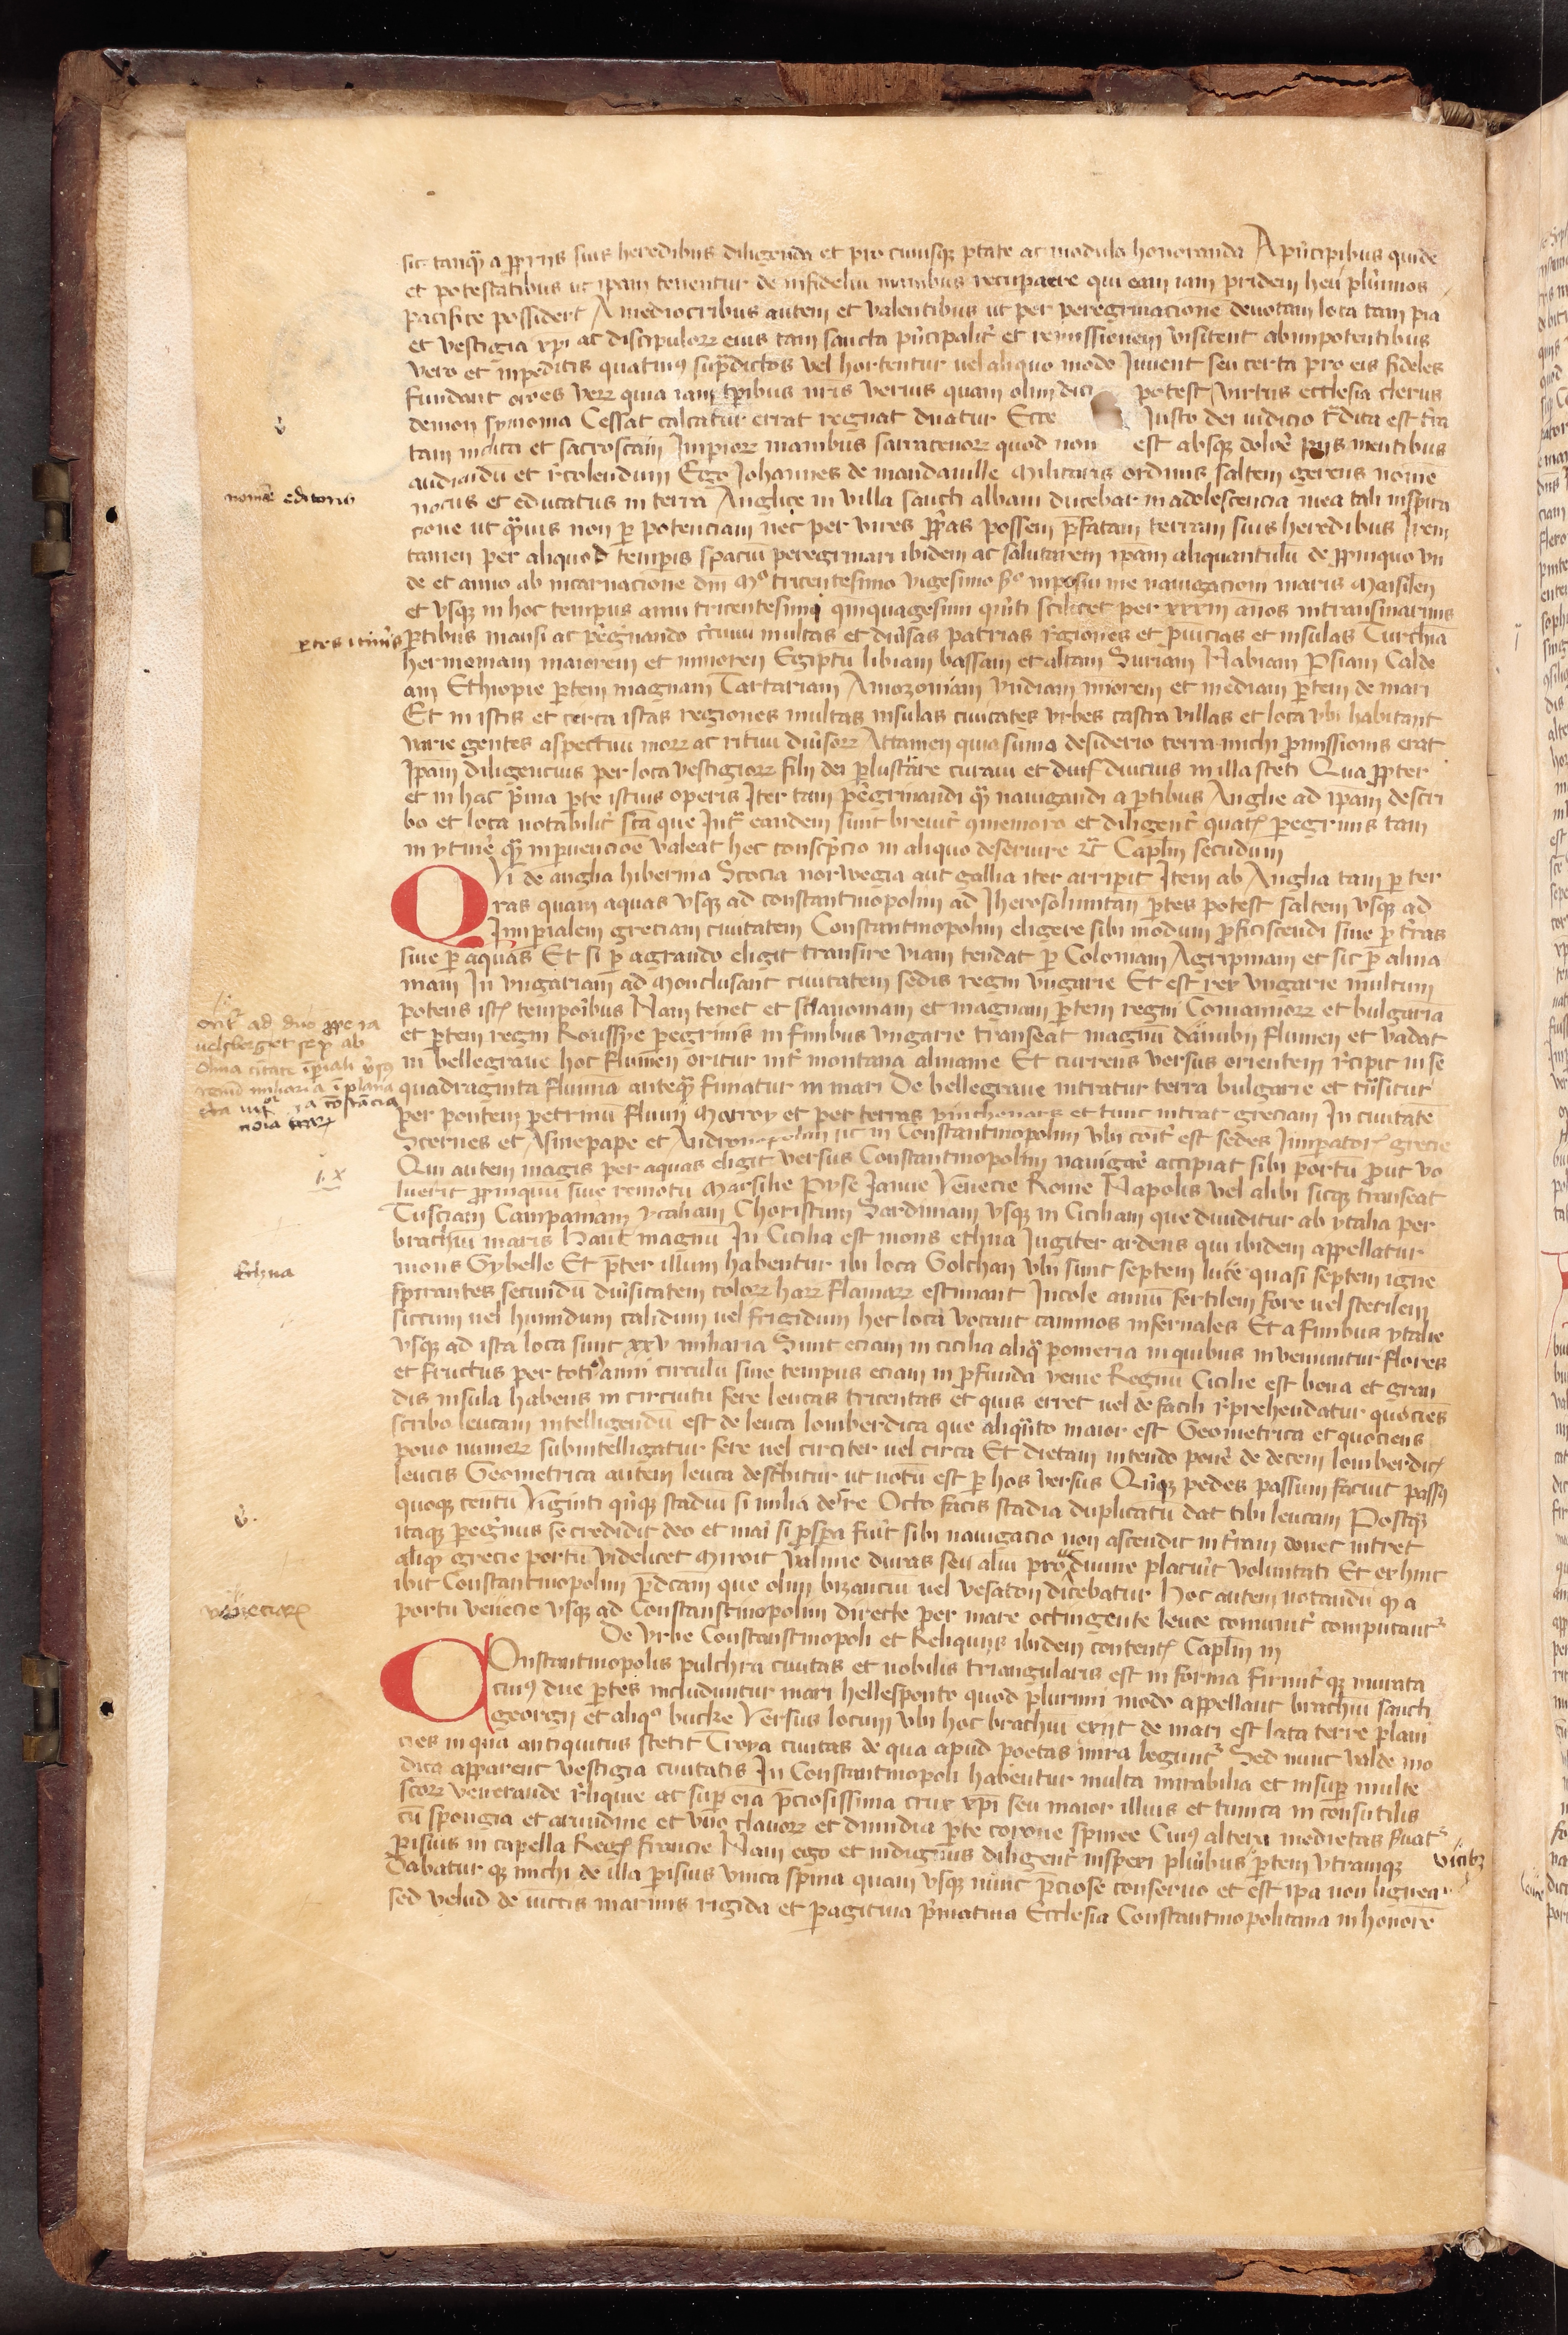 sic tanqȝ a ꝓprijs suis heredibus diligenda et pro cuiusqȝ ꝑtate ac modulo honoranda A pͥncipibus quidē
et potestatibus ut ipam tenentur de infideliū manibus recuꝑare qui eam iam pridem heu plͥimos
pacifice possiderūt A mediocribus autem et valentibus ut per peregrinacione deuotam loca tam pia
et vestigia xpi ac discipuloꝝ eius tam sancta pͥncipalit̉ et remissionem visitent ab impotentibus
vero et inpeditis quatinꝰ sup̄dictos vel hortentur uel aliquo modo Juuent seu certa pro eis fideles
fundant or̄oes veꝝ quia iam tꝑibus nr̄is verius quam olim dici potest virtus ecclesia clerus
demon symonia Cessat calcatur errat regnat dn̄atur Ecce Justo dei iudicio t̄dita est tr̄a
tam inclita et sacrosc̄am Impioꝝ manibus sarracenoꝝ quod non est absqȝ dolor̉ pijs mentibus
audiendū et r̉colendum Ego Johannes de mandauille militaris ordinis saltem gerens nomē
natus et educatus in terra Anglie in villa sancti albani ducebar in adolescencia mea tali inspira
cione ut qͣuis non ꝑ potenciam nec per vires ꝓp̄as possem p̄fatam terram suis heredibus
tamen per aliquod temporis spaciū peregrinari ibidem ac salutarem ip̄am aliquantulū de ꝓpinquo vn
de et anno ab incarnacione dn̄i Mͦ tricentesimo vigesimo sͦ inposui me nauigacioni maris Marsilien
et vsqȝ in hoc tempus anni tricentesimi qinquagesimi qͥnti scilicet per xxxiii annos in transmarinis
ꝑtibus mansi ac ꝑegͥnando multas et diūsas patrias r̉giones et ꝓuīcias et insulas Turchiā
hermoniam maiorem et minorem Egiptū libiam bassam et altam Suriam Nabiam Psiam Calde
am Ethiopie ꝑtem magnam Tartariam Amozoniam yndiam mīorem et mediam ꝑtem de mari
Et in istis et circa istas regiones multas insulas ciuitates vrbes castra villas et loca vbi habitant
varie gentes aspectuū moꝝ ac rituū diūsoꝝ Attamen quia sumo desiderio terra michi ꝓmissionis erat
Ipam diligencius per loca vestigioꝝ filij dei ꝑlustrare curaui et diucius in illa steti Qua ꝓpter
et in hac pͥma ꝑte istius operis Iter tam ꝑegrinandi qͣ nauigandi a ꝑtibus Anglie ad ipam descri
bo et loca notabilit̉ sc̄a que Int̉ eandem sunt breuit̉ 9memoro et diligent̉ quatꝰ ꝑegrinis tam
in ytiner̉ qͣ in ꝑuencioē valeat hec conscpͥcio in aliquo deseruire ⁊c̄ Caplm secundum
Qvi de anglia hibernia Scocia norwegia aut gallia iter arripit Item ab Anglia tam ꝑ ter
ras quam aquas vsqȝ ad constantinopolim ad Iherosolimitan ꝑtes potest saltem vsqȝ ad
Imperialem greciam ciuitatem Constantinopolim eligere sibi modum ꝓficiscendi siue ꝑ tr̄as
siue ꝑ aquas Et si ꝑ agrando eligit transire viam tendat ꝑ Coloniam Agripinam et sic ꝑ alma
niam In vngariam ad Monclusant ciuitatem sedis regni vngarie Et est rex vngarie multum
potens istꝭ temporibus Nam tenet et sclauoniam et magnam ꝑtem regni Comannoꝝ et bulgaria
et ꝑtem regni Roussye peregrinꝰ in finibus vngarie transeat magnū danubij flumen et vadat
in bellegraue hoc flumen oritur int̉ montana almanie Et currens versus orientem r̉cipit in se
quadraginta flumina anteqȝ finiatur in mari De bellegraue intratur terra bulgarie et trāsitur
per pontem petrinū fluuij Marroy et per terras pinthenars et tunc intrat greciam In ciuitatē
Sternes et Asinepape et ut in Constantinopolim vbi coīt̉ est sedes Impatorꝭ grecie
Qui autem magis per aquas eligit versus Constantinopolim nauigar̉ accipiat sibi portū ꝓut vo
luerit ꝓpinquū siue remotū Marsilie Pyse Janue Venecie Rome Napolis vel alibi sicqȝ transeat
Tusciam Campaniam ytaliam Choristum Sardiniam vsqȝ in Ciciliam que diuiditur ab ytalia per
brachiū maris haut magnū In Cicilia est mons ethna Jugiter ardens qui ibidem appellatur
mons Gybelle Et p̄ter illum habentur ibi loca Golchan vbi sunt septem luce quasi septem igne
spirantes secundū diūsitatem coloꝝ haꝝ flamaꝝ estimant Incole annū fertilem fore uel sterilem
siccum uel humidum calidum uel frigidum hec loca vocant caminos infernales Et a finibus ytalie
vsqȝ ad ista loca sunt xxv miliaria Sunt eciam in cicilia aliqͣ pomeria in quibus inveniuntur flores
et fructus per totiꝰ anni circulū siue tempus eciam in ꝓfunda yeme Regnū Cicilie est bona et gran
dis insula habens in circuitu fere leucas tricentas et quis erret uel de facili r̉prehendatur quociēs
scribo leucam intelligendū est de leuca lomberdica que aliqͣnto maior est Geometrica et quociens
pono numeꝝ subintelligatur fere uel circiter uel circa Et dietam intendo poner̉ de decem lomberdicꝭ
leucis Geometrica autem leuca describitur ut notū est ꝑ hos versus Quīqȝ pedes passum faciūt passꝰ
quoqȝ centū Viginti qͥnqȝ stadiū si milia des Octo facis stadia duplicatū dat tibi leucam Postqȝ
itaqȝ ꝑegrinus se credidit deo et mar̉ si ꝓspa fuīt sibi nauigacio non ascendit in tr̄am donec intret
aliqȝ grecie portū videlicet Miroit Valone duras seu aliū pro diuine placuīt voluntati Et ex hinc
ibit Constantinopolim p̄dc̄am que olim bizanciū uel vesaton dicebatur Hoc autem notandū qȝ a
portu venecie vsqȝ ad Constanstinopolim directe per mare octingente leuce comunit̉ computantͬ
De vrbe Constanstinopoli et Reliquijs ibidem contentꝭ Caplm iii
Constantinopolis pulchra ciuitas et nobilis triangularis est in forma firmit̉qȝ murata
cuiꝰ due ꝑtes includuntur mari hellesponto quod plurimi modo appellant brachiū sancti
georgij et aliqͦ bucke Versus locum vbi hoc brachiū exijt de mari est lata terre plani
cies in qua antiquitus stetit Troya ciuitas de qua apud poetas mira leguntͬ Sed nunc valde mo
dica apparent vestigia ciuitatis In Constantinopoli habentur multa mirabilia et insuꝑ multe
sc̄oꝝ venerande r̉liquie ac suꝑ oīa p̄ciosissima crux xpi seu maior illius et tunica in consutilis
cū spongia et arundine et vno clauoꝝ et dimidia ꝑte corone spinee Cuiꝰ altera medietas ẜuatͬ
ꝑisius in capella Regꝭ francie Nam ego et indignus diligent̉ inspexi plͥibus ꝑtem vtramqȝ vicibȝ
Dabaturqȝ michi de illa ꝑisius vnica spina quam vsqȝ nūc p̄ciose conseruo et est ipa non lignea
sed velud de iuncis marinis rigida et pagitiua pͥmatiua Ecclesia Constantinopolitana in honorē
nomē editoris
ꝑtes itineris
Ethna